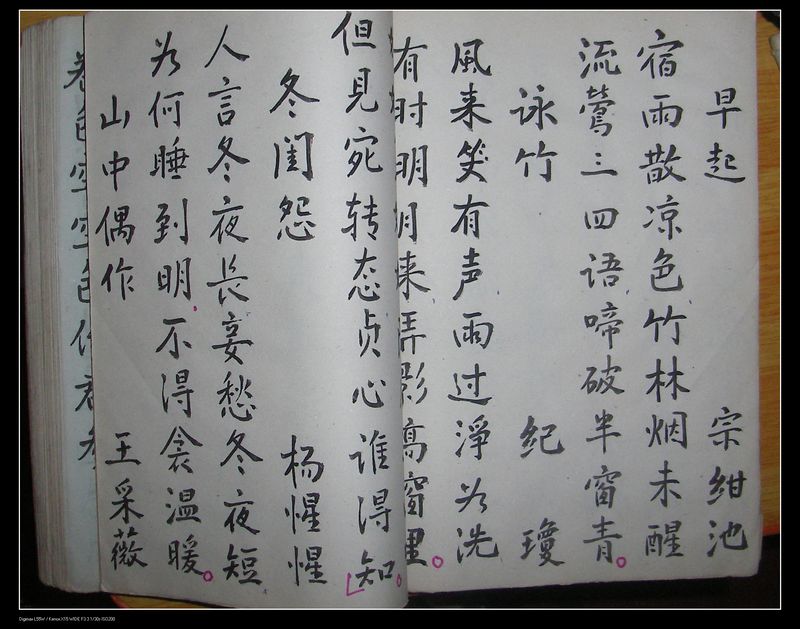 早起 宗绀池
宿雨散凉色竹林烟未醒
流鶯三四语啼破半窗青。
咏竹 纪瓊
風来笑有声雨过淨为洗
有时明月来弄影高窗里。
但見宛转态贞心谁得知。
冬闺怨 杨惺惺
人言冬夜長妾愁冬夜短
为何睡到明不得衾温暖。
山中偶作 王采薇
色空空色